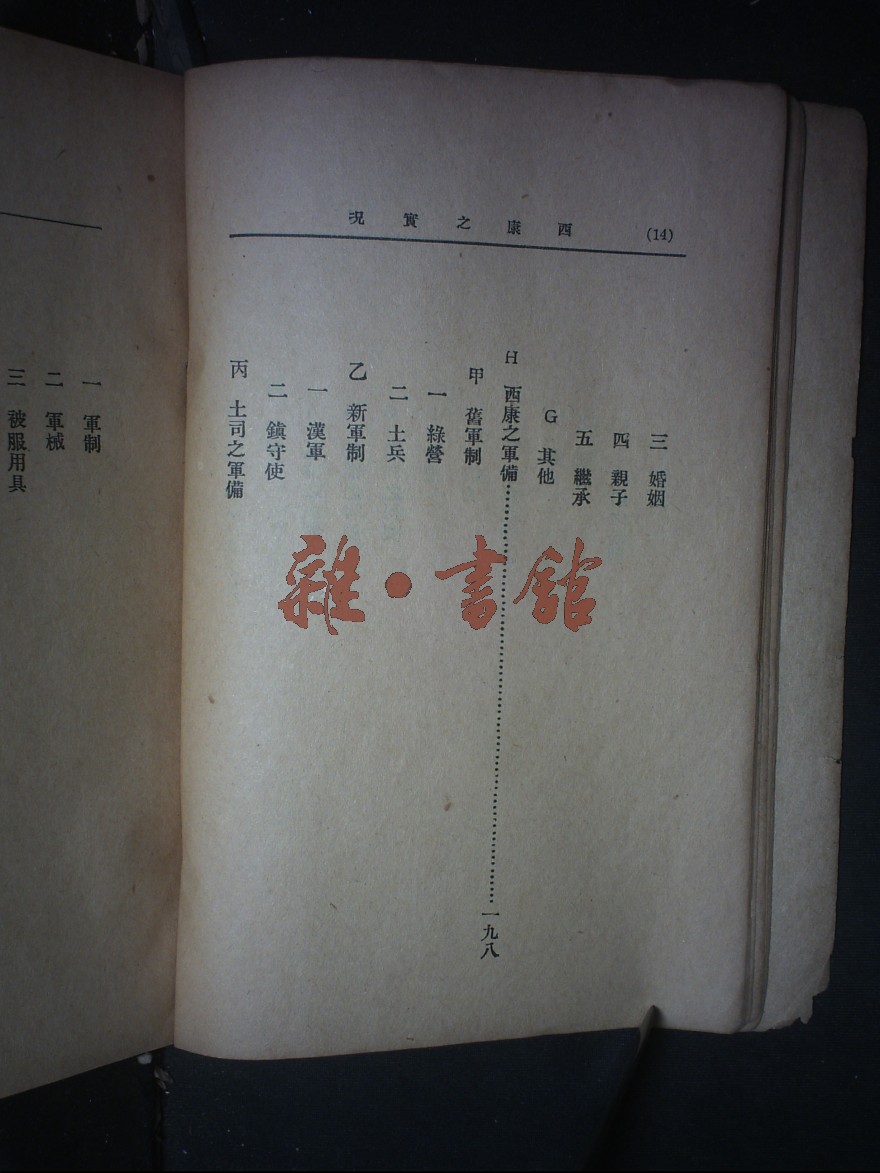 西康之實況 (14)
三 婚姻
四 親子
五 繼承
G 其他
H 西康之軍備……一九八
甲 舊軍制
一 綠營
二 士兵
乙 新軍制
一 漢軍
二 鎮守使
丙 土司之軍備
一 軍制
二 軍械
三 被服用具
雜·書館